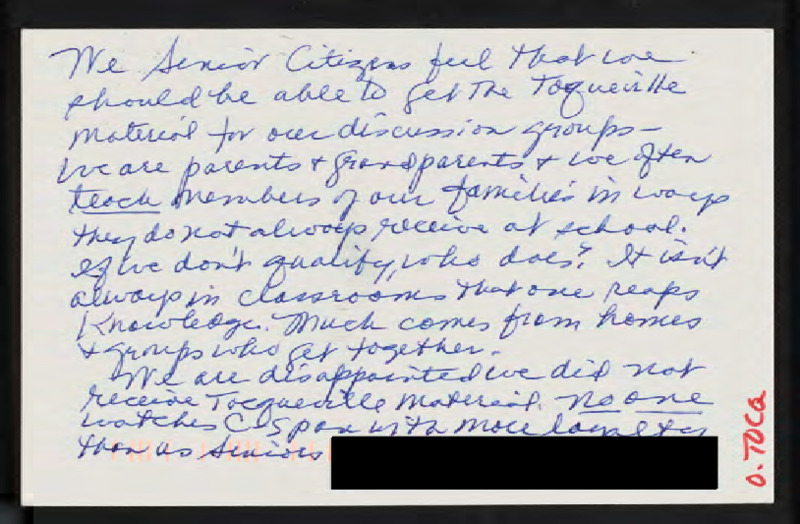 We Senior Citizens feel that we
should be able to get the Toqueville
material for our discussion groups—
We are parents + grandparents + we often
teach members of our families in ways
they do not always receive at school.
If we don't qualify, who does? It isn't
always in classrooms that one reaps
Knowledge. Much comes from homes
+ groups who get together.
We are disappointed we did not
receive Tocqueville material. No one
watches C-Span with more loyalty
than us Seniors
O. TOCQ